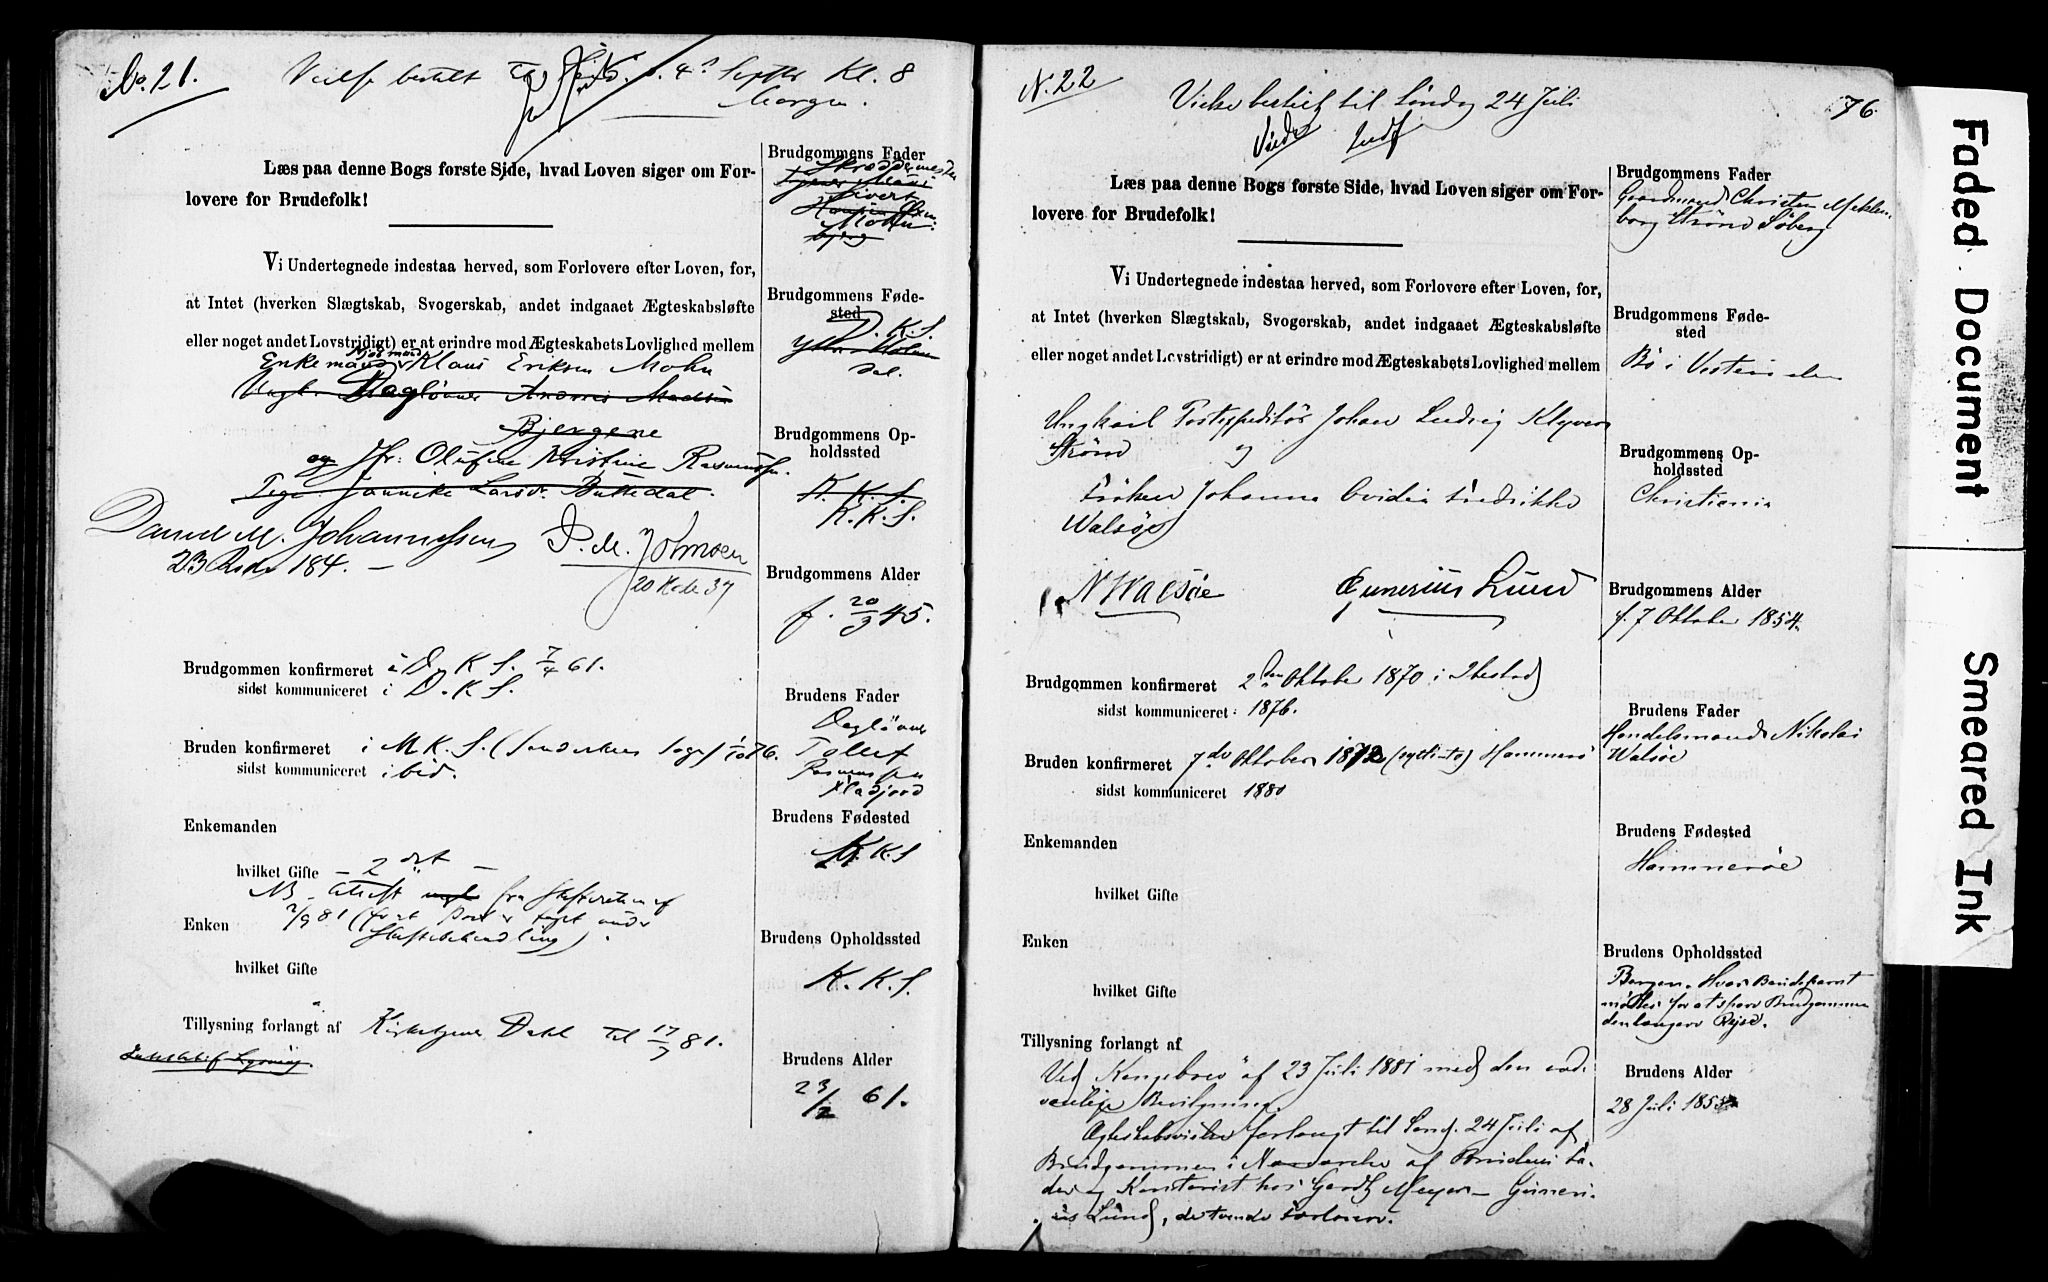 No. 21. Vielse bestilt 4de Septbr Kl. 8
Morgen.
Læs paa denne Bogs første Side, hvad Loven siger om For-
lovere for Brudefolk!
Vi Undertegnede indestaa herved, som Forlovere efter Loven, for,
at Intet (hverken Slægtskab, Svogerskab, andet indgaaet Ægteskabsløfte
eller noget andet Lovstridigt) er at erindre mod Ægteskabets Lovlighed mellem
Enkemand Klaus Eriksen Mohn
Ungk. Dagløner Andreas Madsen
Bjergene
og Jfr. Olufine Kristine Rasmussen.
Pige Jannike Larsdr.
Daniel M. Johannessen P. M. Johnsen
23 Rode 184. 20 Rode 37
Brudgommen konfirmeret i D. K. S. 7/4 61.
sidst kommuniceret i D. K. S.
Bruden konfirmeret i M K. S. (Sogn) 76.
sidst kommuniceret ibid.
Enkemanden
hvilket Gifte 2det
NB. Attest fra Skifteretten af
2/9 81 (for at Boet er taget under
Skiftebehandling).
Enken
hvilket Gifte
Tillysning forlangt af Kirketjener Dahl til 17/7 81.
Brudgommens Fader
Skræddermester
Brudgommens Føde-
sted
D. K. S.
Brudgommens Op-
holdssted
K. K. S.
K. K. S.
Brudgommens Alder
f. 20/9 45.
Brudens Fader
Dagløner
Tollef
Rasmussen
Brudens Fødested
K. K. S
Brudens Opholdssted
K. K. S.
Brudens Alder
23/2 61.
N. 22 Vielse bestilt til Søndag 24 Juli
76.
Viede Indf
Læs paa denne Bogs første Side, hvad Loven siger om For-
lovere for Brudefolk!
Vi Undertegnede indestaa herved, som Forlovere efter Loven, for,
at Intet (hverken Slægtskab, Svogerskab, andet indgaaet Ægteskabsløfte
eller noget andet Lovstridigt) er at erindre mod Ægteskabets Lovlighed mellem
Ungkarl Postexpeditör Johan Ludvig Klyver
Strönd og
Fröken Johanna Ovidia Fredrikke
Walsöe
N Walsöe Gunerius Lund
Brudgommen konfirmeret 2den Oktober 1870 i Ibestad
sidst kommuniceret 1876.
Bruden konfirmeret 7de Oktober 1872 (sytti-to) Hammerö
sidst kommuniceret 1880
Enkemanden
hvilket Gifte
Enken
hvilket Gifte
Tillysning forlangt af
Ved Kongebrev af 23 Juli 1881 med den sæd-
vanlige Bevilgning.
Ægteskabsvielsen forlangt til Sönd. 24 Juli af
Brudgommen i Nærværelse af Brudens Fa-
der og Kontorist hos Gerdt Meyer - Guneri-
us Lund, de tvende Forlovere.
Brudgommens Fader
Gaardmand Christen Meklen-
borg Strönd Söberg
Brudgommens Føde-
sted
Bö i Vesteraalen
Brudgommens Op-
holdssted
Christiania
Brudgommens Alder
f. 7 Oktober 1854.
Brudens Fader
Handelsmand Nikolai
Walsöe
Brudens Fødested
Hammeröe
Brudens Opholdssted
Bergen. Hvor Brudeparret
mödtes for at spare Brudgommen
den længere Rejse.
Brudens Alder
28 Juli 1858
Faded Document
Smeared Ink